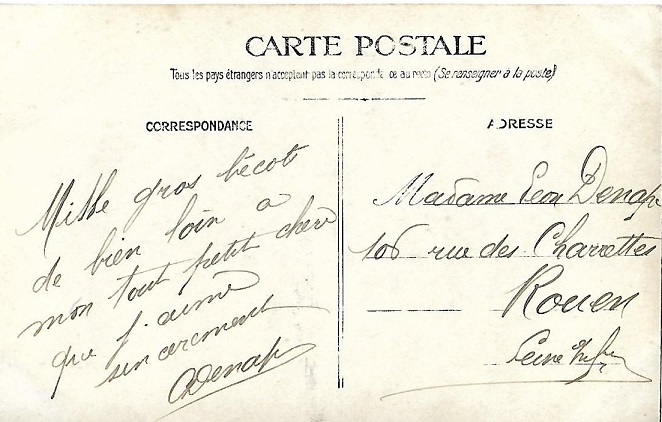 CARTE POSTALE
Tous les pays étrangers n'acceptent pas la correspondance au recto (Se renseigner à la poste)
CORRESPONDANCE
ADRESSE
Mille gros bécots
de bien loin a
mon tout petit chéri
que j'aime
sincerement
Denap
Madame Léon Denap
106 rue des Charrettes
Rouen
Seine Infre